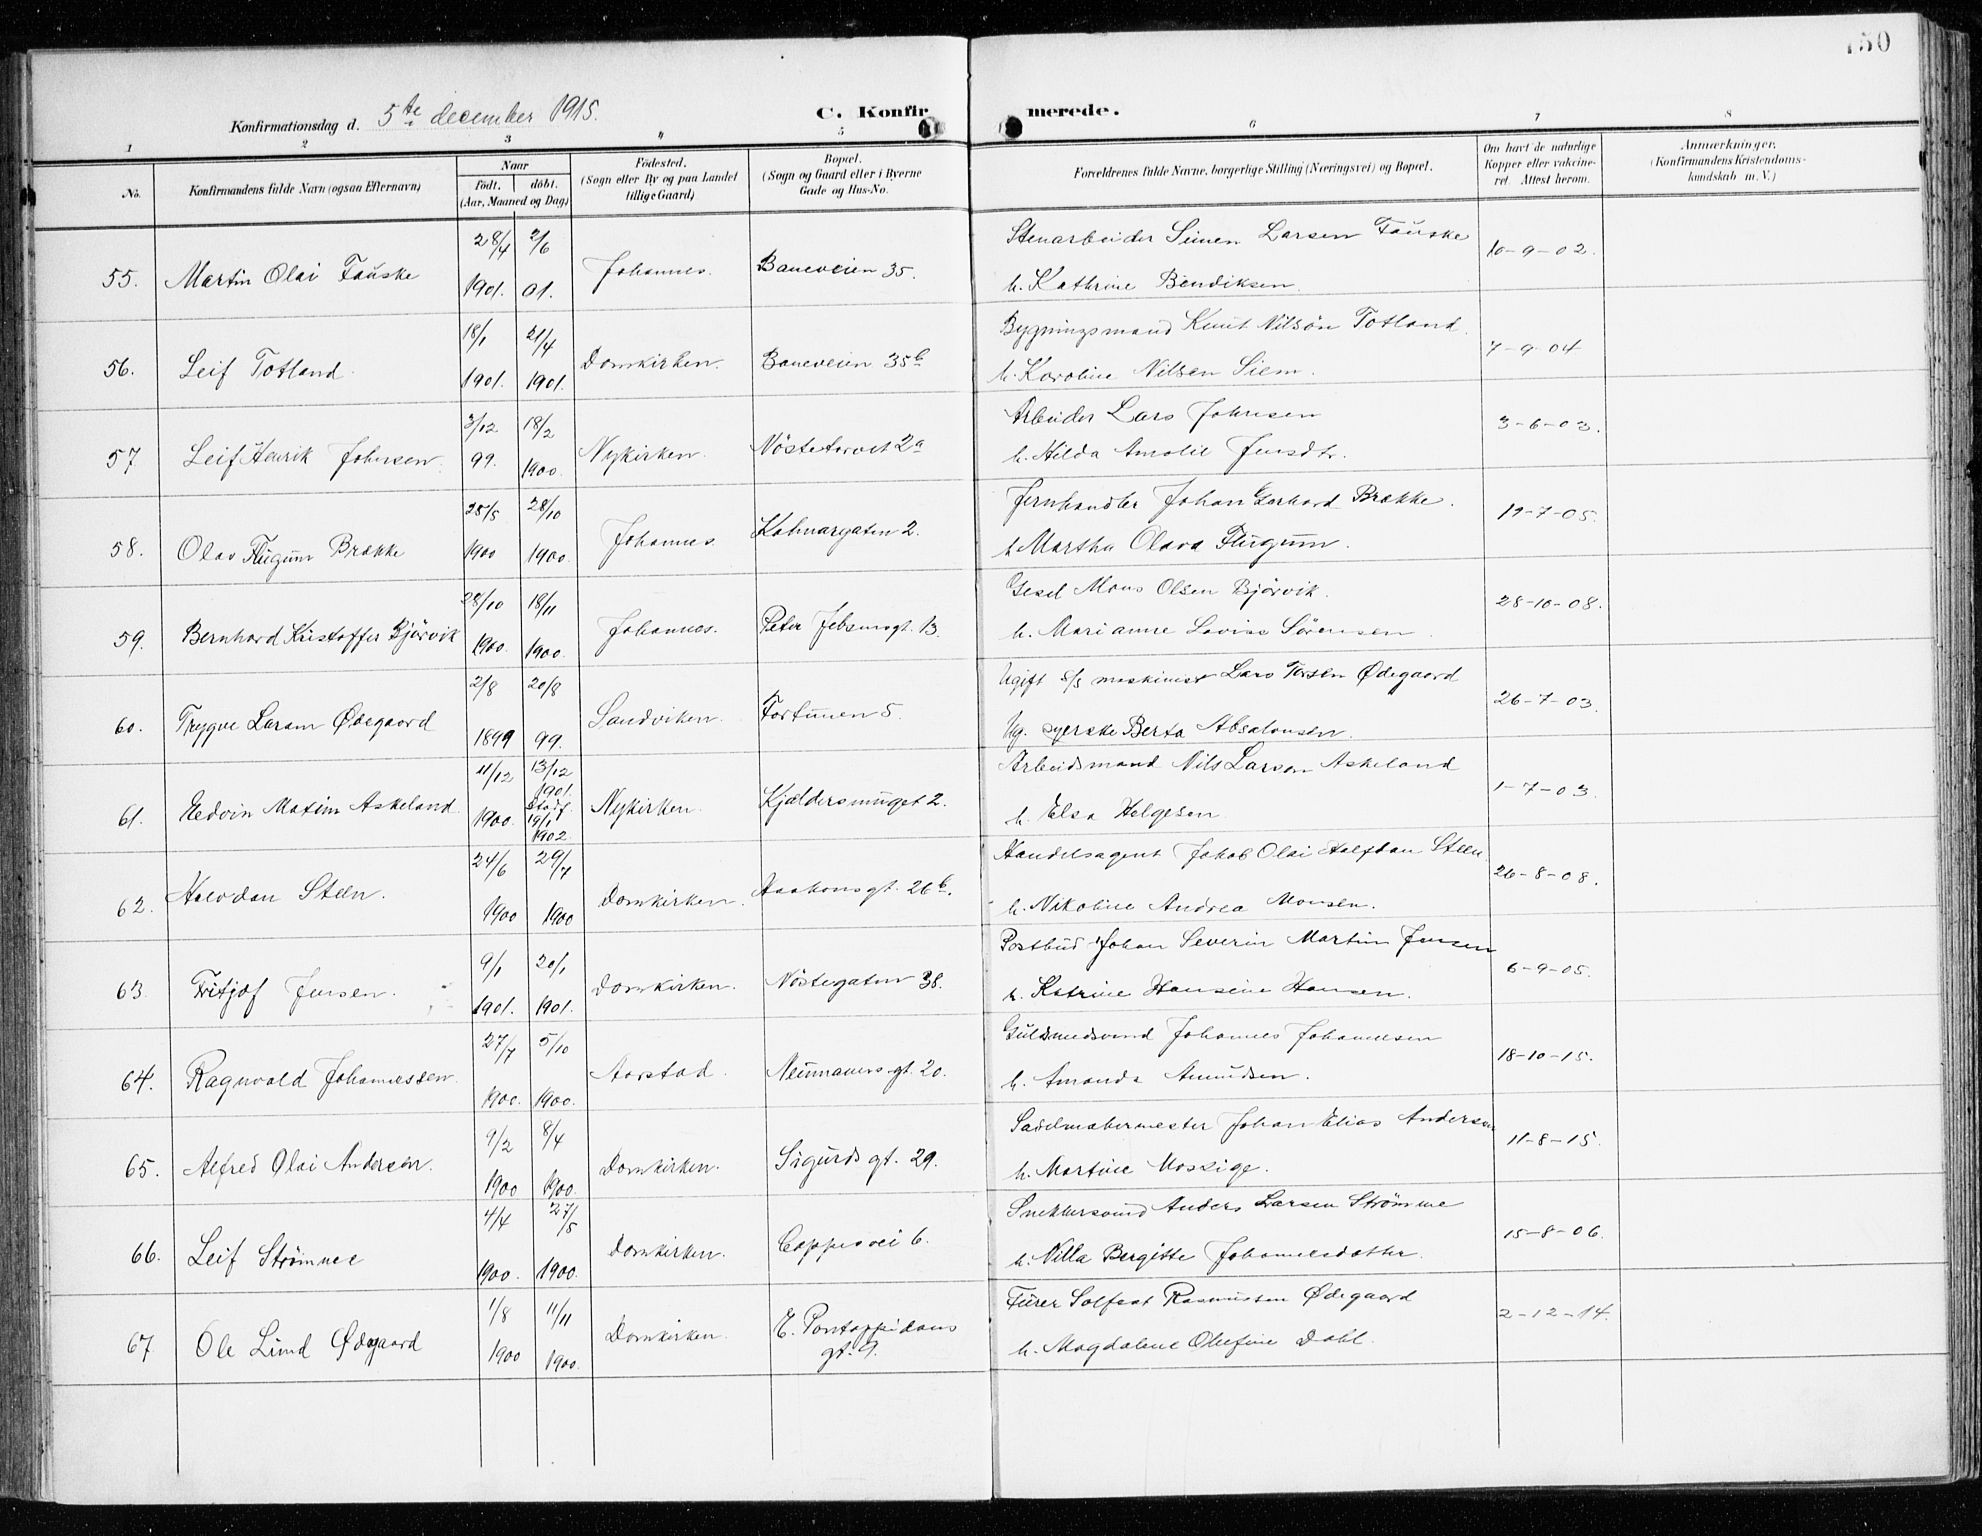 150
Konfirmationsdag d. 5te december 1915.
C. Konfirmerede.
1 2 3 4 5 6 7 8
No. Konfirmandens fulde Navn (ogsaa Efternavn) Naar Født. døbt. (Aar, Maaned og Dag) Fødested. (Sogn eller By og paa Landet tillige Gaard) Bopæl. (Sogn og Gaard eller i Byerne Gade og Hus-No. Forældrenes fulde Navne, borgerlige Stilling (Næringsvei) og Bopæl. Om havt de naturlige Kopper eller vakcineret. Attest herom. Anmærkninger. (Konfirmandens Kristendomskundskab m. V.)
28/4 2/6 Stenarbeider Simen Larsen Fauske
55. Martin Olai Fauske 1901. 01. Johannes. Baneveien 35. h. Kathrine Bendiksen. 10-9-02.
18/1 21/4 Bygningsmand Knut Nilsøn Totland.
56. Leif Totland. 1901. 1901. Domkirken. Baneveien 35b h. Karoline Nilsen Siem. 7-9-04
3/12 18/2 Arbeider Lars Johnsen
57 Leif Henrik Johnsen. 99. 1900. Nykirken. Nöstetorvet 2a h. Hilda Amalie Jensdtr. 3-6-03.
25/5 28/10 Jernhandler Johan Gerhard Brække.
58. Olav Flugum Brække 1900 1900. Johannes Kalmargaten 2. h. Martha Olava Flugum. 19-7-05.
28/10 18/11 Gesel Mons Olsen Bjørvik.
59. Bernhard Kristoffer Bjørvik 1900. 1900. Johannes. Peter Jebsensgt. 13. h. Marianne Lovise Sørensen. 28-10-08.
2/8 20/8 Ugift s/s maskinist Lars Larsen Ødegaard
60. Trygve Larsen Ødegaard 1899 99. Sandviken. Fortunen 5. Ug. syerske Berta Absalonsen. 26-7-03.
11/12 13/12 1901. Arbeidsmand Nils Larsen Askeland
61. Hedvin Maxim Askeland. 1900. stadf. 19/1 1902. Nykirken. Kjældersmuget 2. h. Elsa Helgesen. 1-7-03.
24/6 29/7 Handelsagent Jakob Olai Halfdan Steen.
62. Halvdan Steen. 1900 1900 Domkirken. Haakonsgt. 26b. h. Nikoline Andrea Monsen. 26-8-08.
9/1 20/1 Postbud Johan Severin Martin Jensen
63. Fritjof Jensen. 1901. 1901. Domkirken. Nöstegaten 38. h. Katrine Hansine Hansen. 6-9-05.
27/7 5/10 Guldsmedsvend Johannes Johannesen
64. Ragnvald Johannessen. 1900. 1900. Aarstad. Neumannsgt. 20. h. Amanda Amundsen. 18-10-15.
9/2 8/4 Sadelmakermester Johan Elias Andersen
65. Alfred Olai Andersen. 1900 1900. Domkirken. Sigurdsgt. 29. h. Martine Mossige. 11-8-15.
4/4 27/5 Snekkersvend Anders Larsen Strömme
66. Leif Strömme 1900. 1900. Domkirken. Cappesvei 6. h. Villa Bergitte Johannesdatter. 15-8-06.
1/8 11/11 Fürer Solfest Rasmussen Ødegaard
67. Ole Lund Ødegaard 1900 1900. Domkirken. E. Pontoppidans gt. 9. h. Magdalene Olufine Dahl. 2-12-14.